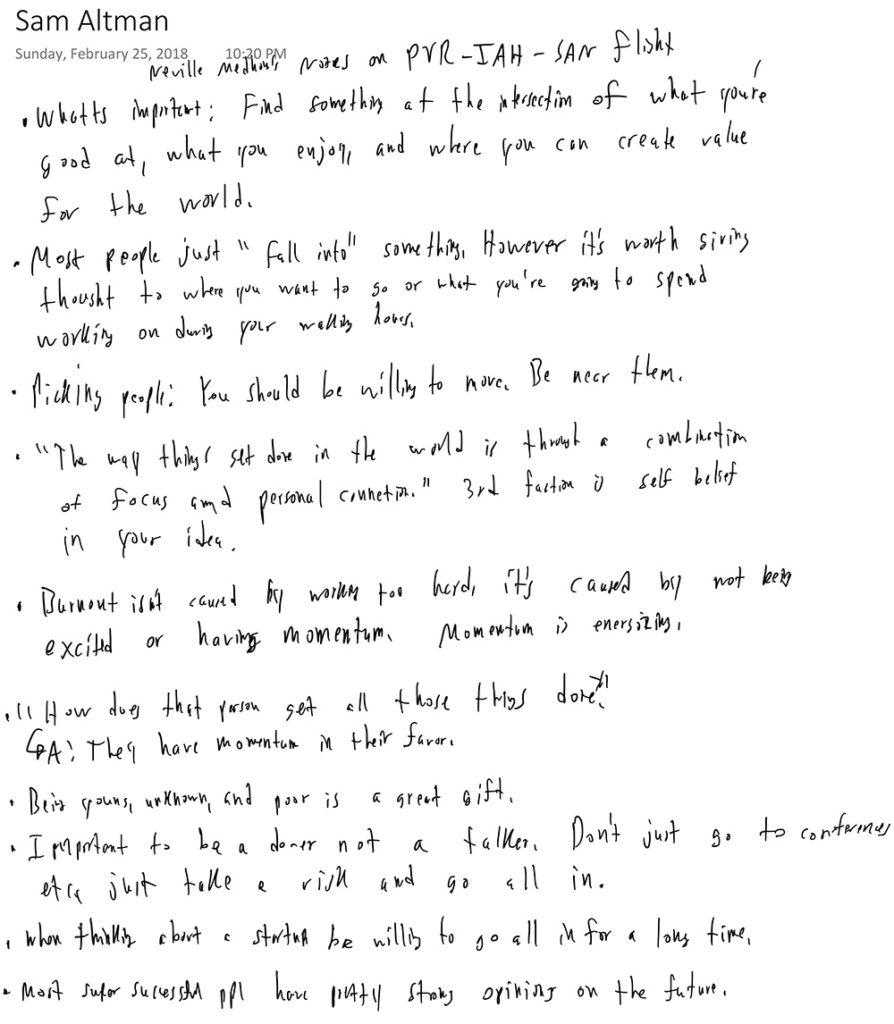 Sam Altman
Sunday, February 25, 2018 10:30 PM
Neville Medhora's Notes on PVR-IAH-SAN flight
• Whatts important: Find something at the intersection of what you're
good at, what you enjoy, and where you can create value
for the world.
• Most people just "fall into" something. However it's worth giving
thought to where you want to go or what you're going to spend
working on during your walking hours.
• Picking people: You should be willing to move. Be near them.
• "The way things get done in the world is through a combination
of focus and personal connection." 3rd faction is self belief
in your idea.
• Burnout isn't caused by working too hard, it's caused by not being
excited or having momentum. Momentum is energizing.
• "How does that person get all those things done?"
↳A: They have momentum in their favor.
• Being young, unknown, and poor is a great gift.
• Important to be a doner not a talker. Don't just go to conferences
etc, just take a risk and go all in.
• When thinking about a startup be willing to go all in for a long time.
• Most super successful ppl have pretty strong opinions on the future.